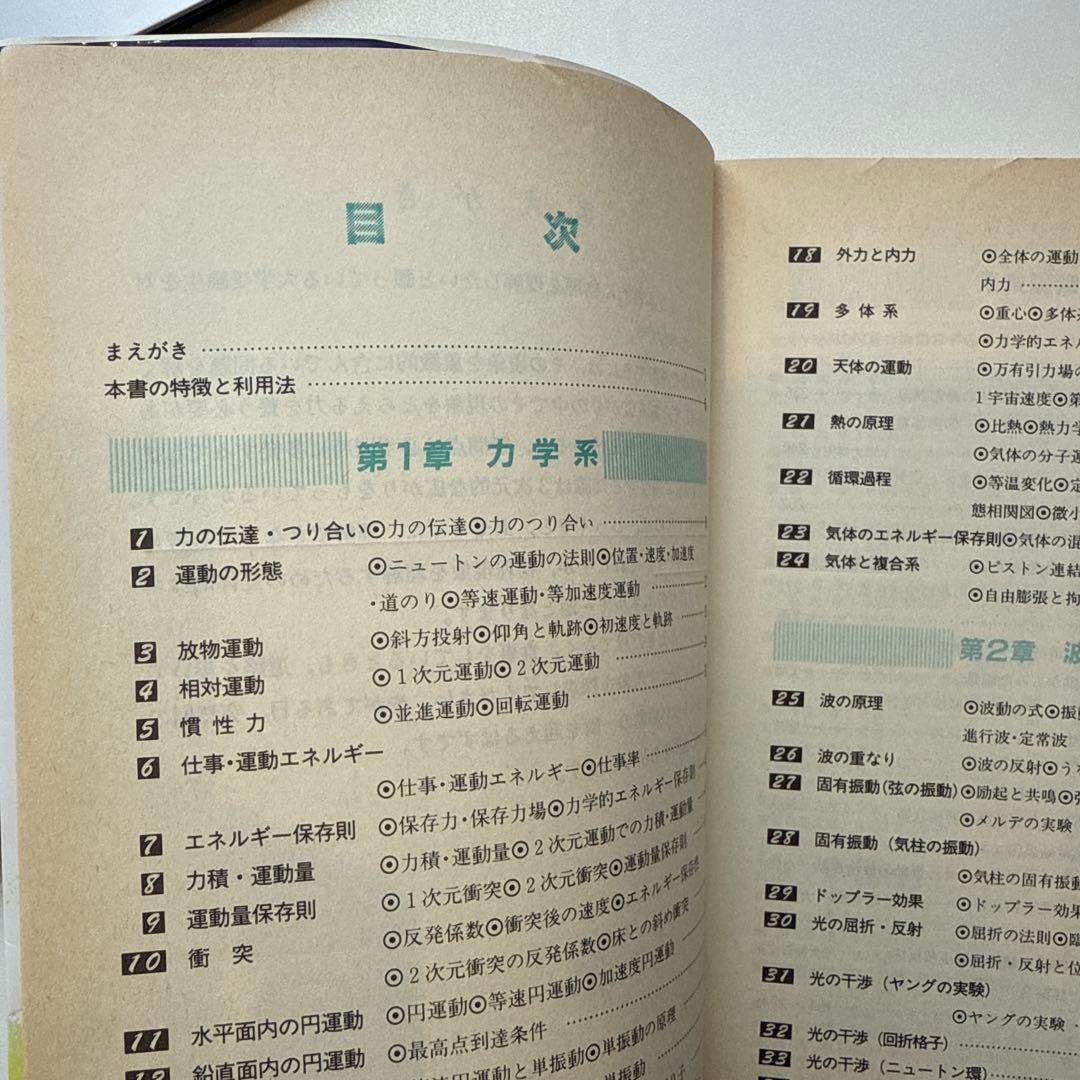 目 次
まえがき
本書の特徴と利用法
第1章 力学系
1 力の伝達・つり合い ⊙力の伝達⊙力のつり合い
2 運動の形態 ⊙ニュートンの運動の法則⊙位置・速度・加速度
・道のり⊙等速運動・等加速度運動
3 放物運動 ⊙斜方投射⊙仰角と軌跡⊙初速度と軌跡
4 相対運動 ⊙1次元運動⊙2次元運動
5 慣性力 ⊙並進運動⊙回転運動
6 仕事・運動エネルギー
⊙仕事・運動エネルギー⊙仕事率
7 エネルギー保存則 ⊙保存力・保存力場⊙力学的エネルギー保存則
8 力積・運動量 ⊙力積・運動量⊙2次元運動での力積・運動量
9 運動量保存則 ⊙1次元衝突⊙2次元衝突⊙運動量保存則
10 衝突 ⊙反発係数⊙衝突後の速度⊙エネルギー保存性
⊙2次元衝突の反発係数⊙床との斜め衝突
11 水平面内の円運動 ⊙円運動⊙等速円運動⊙加速度円運動
12 鉛直面内の円運動 ⊙最高点到達条件
円運動と単振動⊙単振動の原理
18 外力と内力 ⊙全体の運動
内力
19 多体系 ⊙重心⊙多体
⊙力学的エネル
20 天体の運動 ⊙万有引力場の
1宇宙速度⊙第
21 熱の原理 ⊙比熱⊙熱力学
⊙気体の分子運
22 循環過程 ⊙等温変化⊙定
態相関図⊙微小
23 気体のエネルギー保存則⊙気体の混
24 気体と複合系 ⊙ピストン連結
⊙自由膨張と拘
第2章 波
25 波の原理 ⊙波動の式⊙振動
進行波・定常波
26 波の重なり ⊙波の反射⊙うな
27 固有振動(弦の振動) ⊙励起と共鳴⊙弦
⊙メルデの実験
28 固有振動(気柱の振動)
⊙気柱の固有振動
29 ドップラー効果 ⊙ドップラー効果
30 光の屈折・反射 ⊙屈折の法則⊙臨
⊙屈折・反射と位
31 光の干渉(ヤングの実験)
⊙ヤングの実験
32 光の干渉(回折格子)
33 光の干渉(ニュートン環)